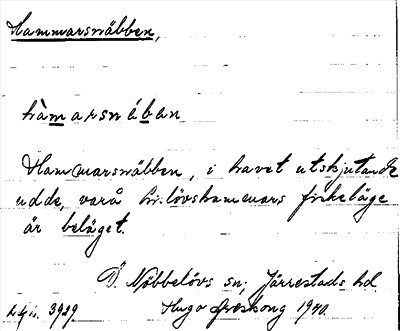 Hammarsnäbben,
hàmarsnában
Hammarsnäbben, i havet utskjutande
udde, varå hislövshammars fiskeläge
är beläget.
Ö. Nöbbelövs sn; Järrestads hd.
3929. Hugo Areskoug 1940.